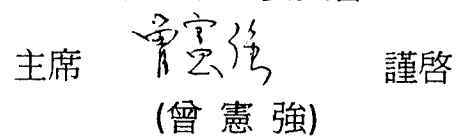 主席 曾憲強 謹啓
(曾 憲 強)